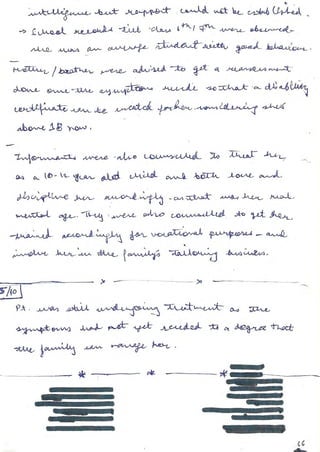 intelligence but rapport could not be established.
→ School records till class 6th, 7th were observed
she was an average student with good behaviour.
Mother/brother were advised to get a reassessment
done once the symptoms recede so that a disability
certificate can be made for her considering she's
above 18 now.
Informants were also counselled to treat her
as a 10-12 year old child and both love and
discipline her accordingly as that was her real
mental age. They were also counselled to get her
trained accordingly for vocational purposes and
involve her in the family's tailoring business.
5/10
Pt. was still undergoing treatment as the
symptoms had not yet receded to a degree that
the family can manage her.